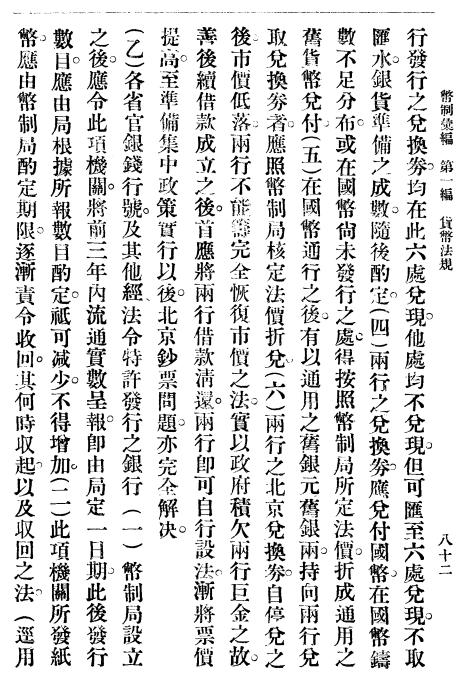 幣制彙編　第一編　貨幣法規
八十二
行發行之兌換券。均在此六處兌現。他處均不兌現。但可匯至六處兌現。不取
匯水。銀貨準備之成數。隨後酌定。(四)兩行之兌換券。應兌付國幣。在國幣鑄
數不足分布。或在國幣尙未發行之處。得按照幣制局所定法價。折成通用之
舊貨幣兌付。(五)在國幣通行之後。有以通用之舊銀元舊銀兩。持向兩行兌
取兌換券者。應照幣制局核定法價折兌。(六)兩行之北京兌換券。自停兌之
後。市價低落。兩行不能籌完全恢復市價之法。實以政府積欠兩行巨金之故。
善後續借款成立之後。首應將兩行借款淸還。兩行卽可自行設法。漸將票價
提高。至準備集中政策實行以後。北京鈔票問題。亦完全解决。
(乙)各省官銀錢行號。及其他經法令特許發行之銀行　(一)幣制局設立
之後。應令此項機關。將前三年內流通實數呈報。卽由局定一日期。此後發行
數目。應由局根據所報數目酌定。祗可减少。不得增加。(二)此項機關所發紙
幣。應由幣制局酌定期限。逐漸責令收回。其何時収起。以及収回之法。(逕用